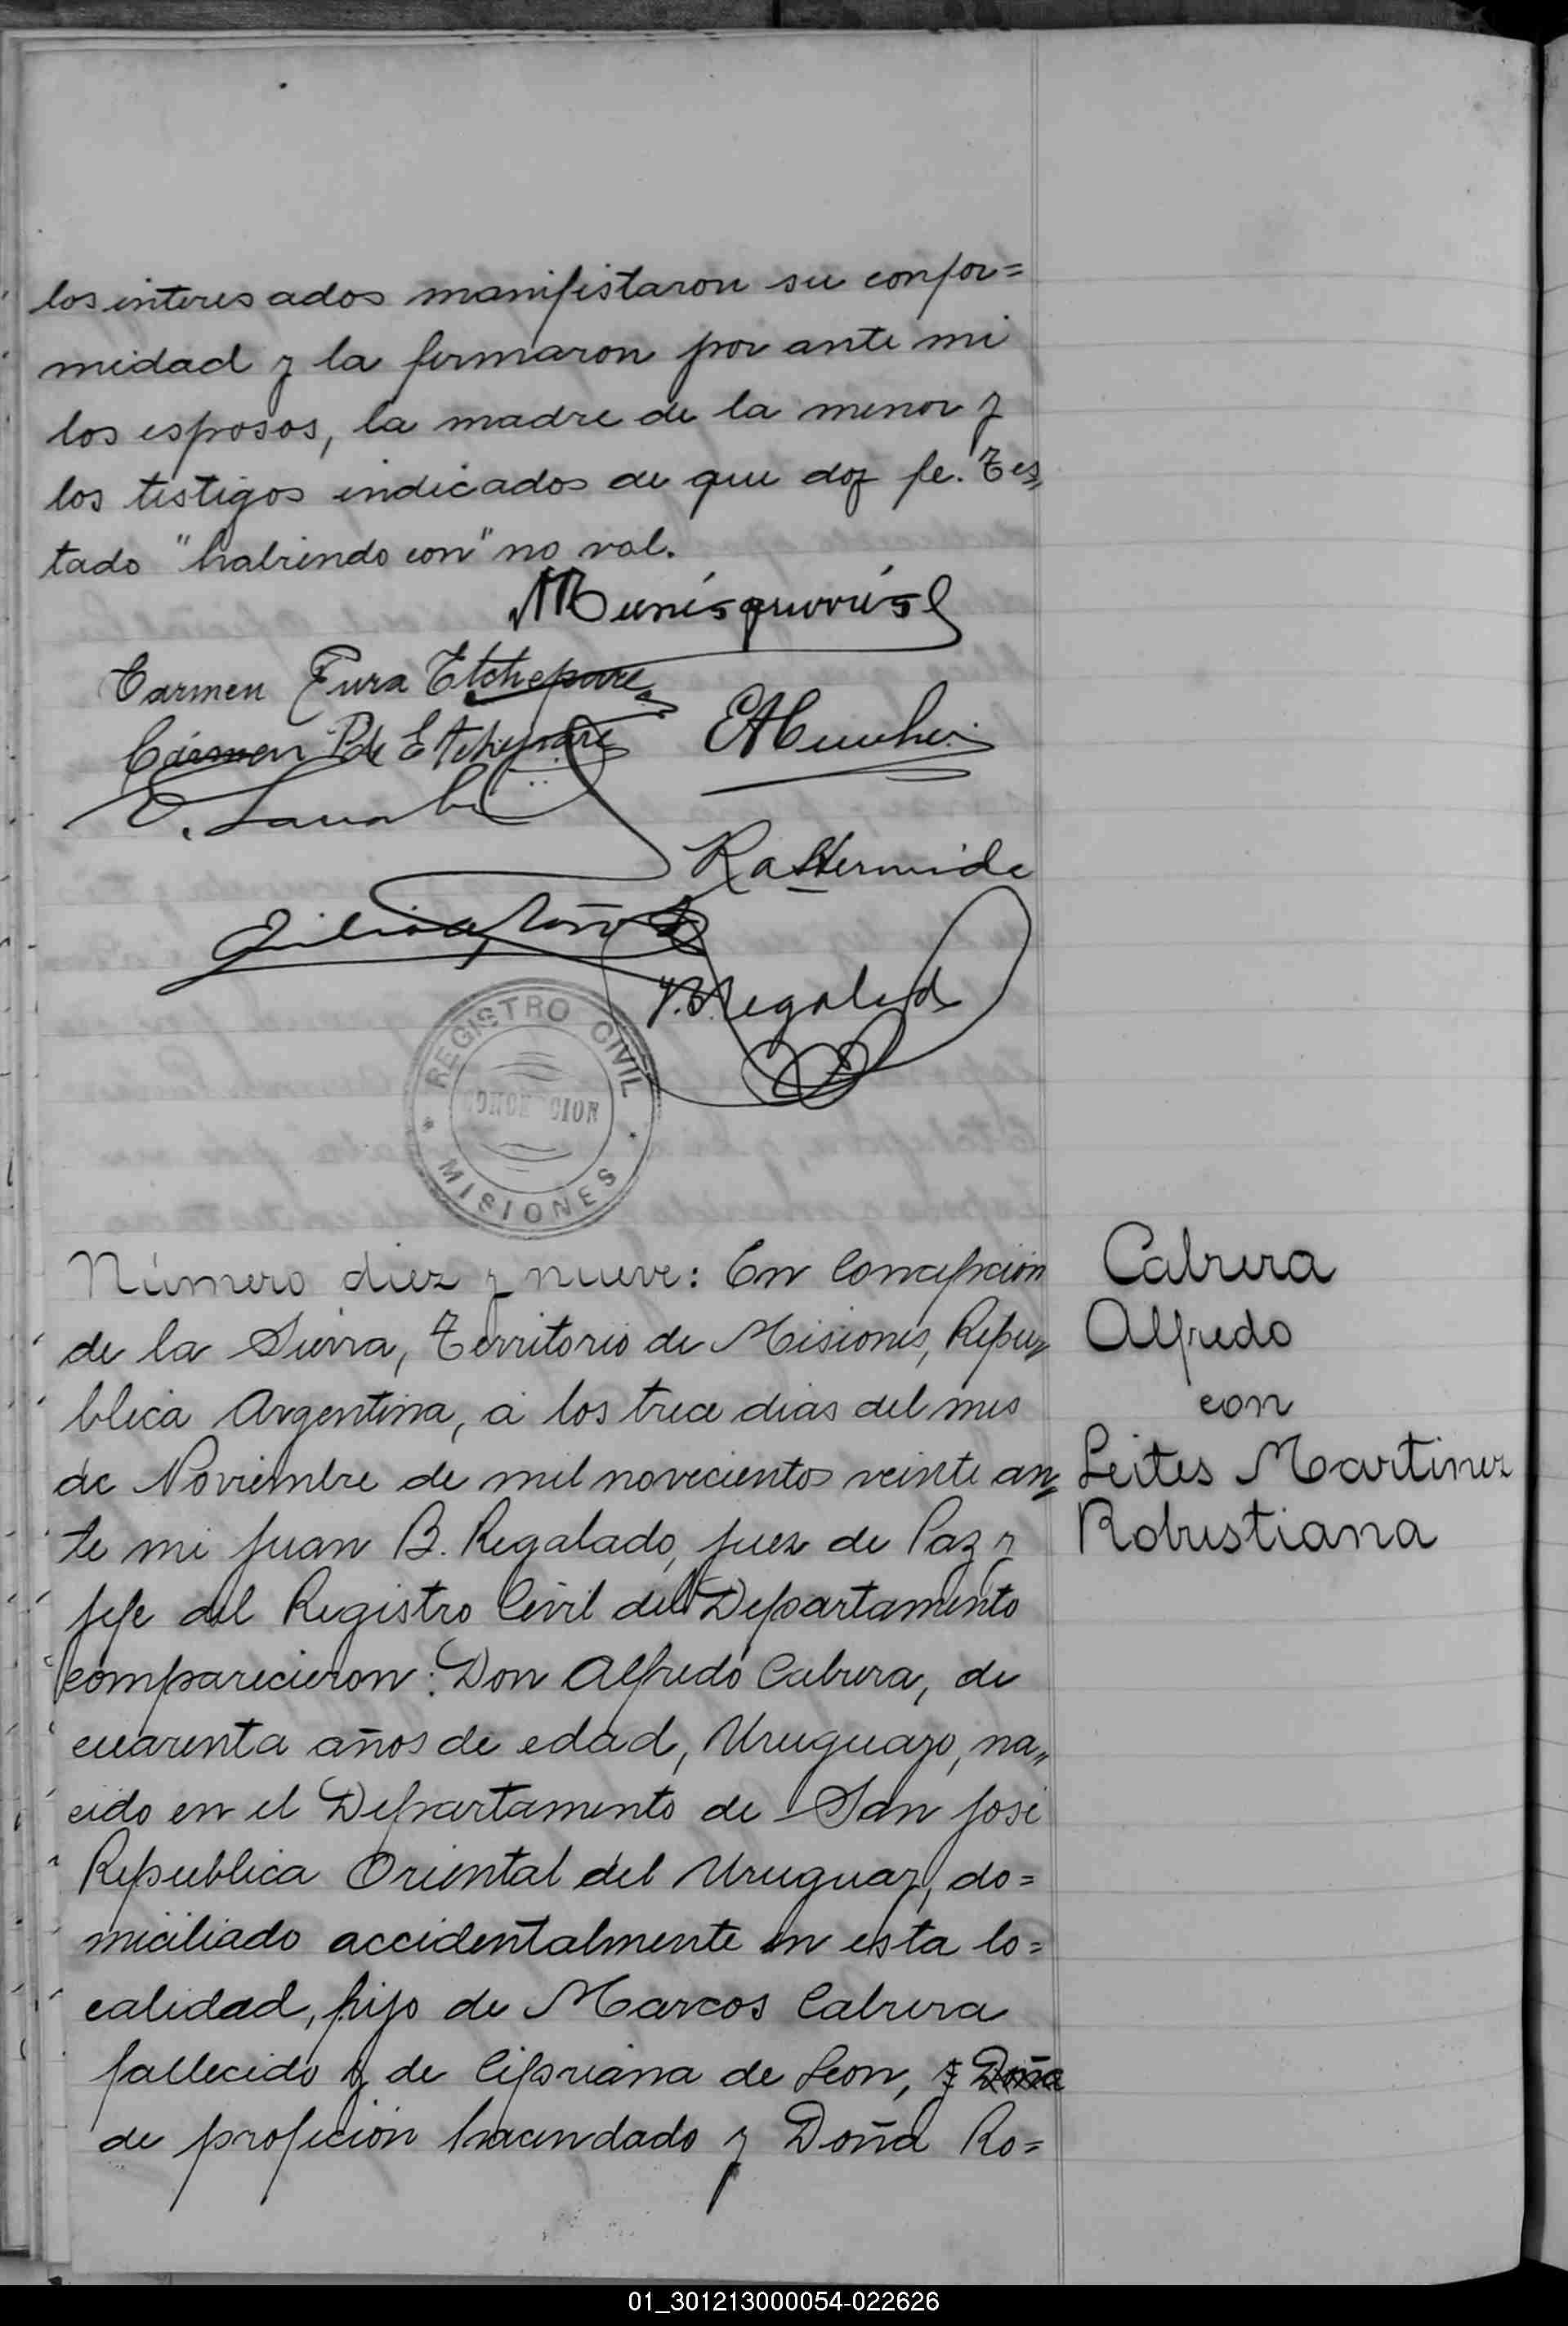 los interesados manifestaron su confor=
midad y la firmaron por ante mi
los esposos, la madre de la menor y
los testigos indicados de que doy fe. Tes,,
tado "habiendo con" no val.
Carmen Pura Etchepare
Carmen P. de Etchepare
J.B. Regalado
REGISTRO CIVIL
CONCEPCION
MISIONES
Número diez y nueve: En Concepción
de la Sierra, Territorio de Misiones, Repu,,
blica Argentina, á los trece dias del mes
de Noviembre de mil novecientos veinte an,,
te mi Juan B. Regalado, Juez de Paz y
Jefe del Registro Civil del Departamento
comparecieron: Don Alfredo Cabrera, de
cuarenta años de edad, Uruguayo, na,,
cido en el Departamento de San José
Republica Oriental del Uruguay, do=
miciliado accidentalmente en esta lo=
calidad, hijo de Marcos Cabrera
fallecido y de Cipriana de Leon, y Doña
de profeción hacendado y Doña Ro=
Cabrera
Alfredo
con
Leites Martinez
Robustiana
01_301213000054-022626